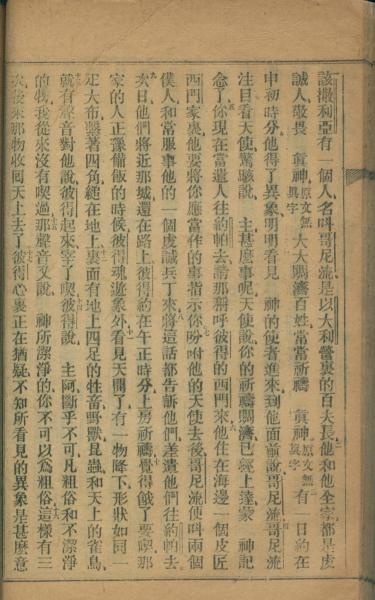 該撒利亞有一個人名叫哥尼流是以大利營裏的百夫長他和他全家都是虔
誠人敬畏 眞神原文無眞字大大賙濟百姓常常祈禱 眞神原文無眞字有一日約在
申初時分他得了異象明明看見 神的使者進來到他面前說哥尼流哥尼流
注目看天使驚駭說 主甚麼事呢天使說你的祈禱賙濟已經上達蒙 神記
念了你現在當遣人往約帕去請那稱呼彼得的西門來他住在海邊一個皮匠
西門家裏他要將你應當作的事指示你吩咐他的天使去後哥尼流便叫兩個
僕人和常服事他的一個虔誠兵丁來將這話都告訴他們差遣他們往約帕去
次日他們將近那城還在路上彼得約在午正時分上房祈禱覺得餓了要喫那
家的人正豫備飯的時候彼得魂遊象外看見天開了有一物降下形狀如同一
疋大布繫著四角縋在地上裏面有地上四足的牲畜野獸昆蟲和天上的雀鳥
就有聲音對他說彼得起來宰了喫彼得說 主阿斷乎不可凡粗俗和不潔淨
的物我從來沒有喫過那聲音又說 神所潔淨的你不可以爲粗俗這樣有三
次後來那物收回天上去了彼得心裏正在猶疑不知所看見的異象是甚麼意